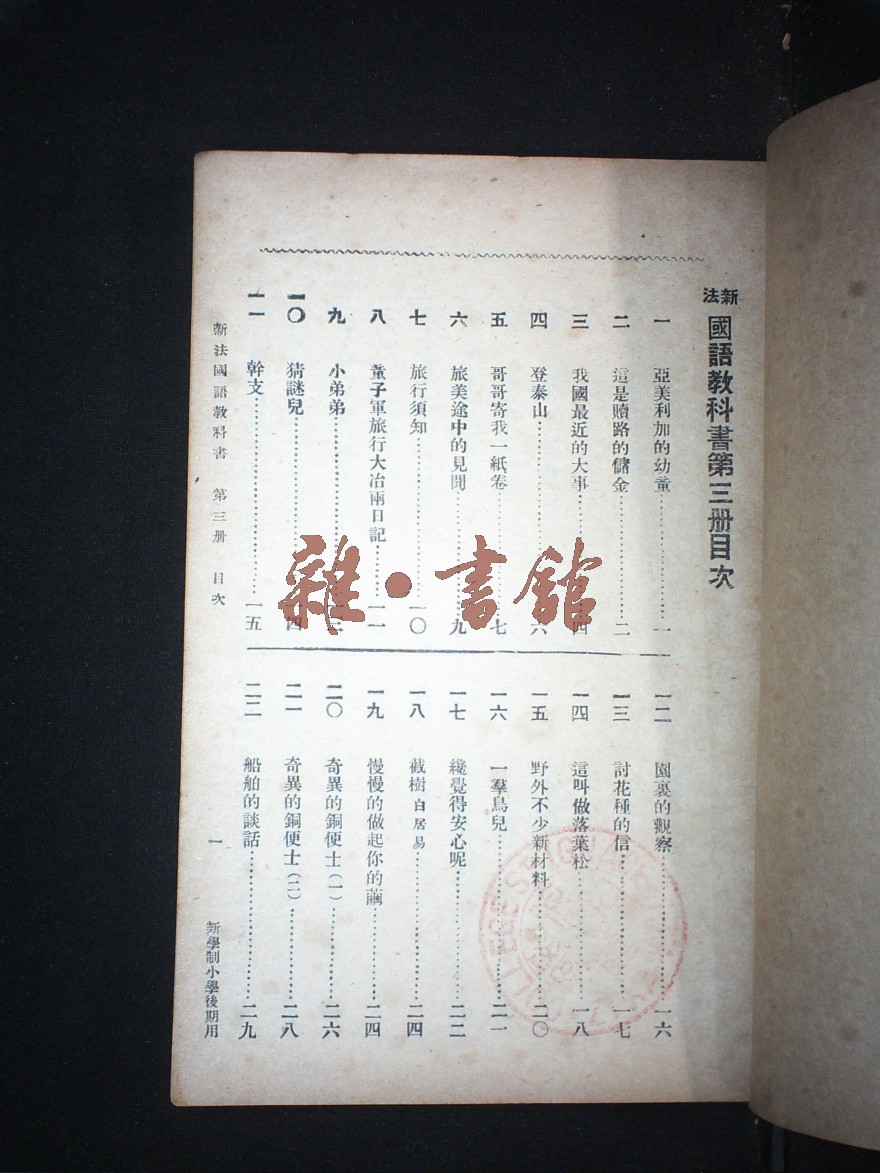 新法國語教科書第三册目次
一 亞美利加的幼童 一
二 這是贖路的儲金 二
三 我國最近的大事 四
四 登泰山 六
五 哥哥寄我一紙卷 七
六 旅美途中的見聞 九
七 旅行須知 一〇
八 童子軍旅行大冶兩日記 一一
九 小弟弟
一〇 猜謎兒 一四
一一 幹支 一五
一二 園裏的觀察 一六
一三 討花種的信 一七
一四 這叫做落葉松 一八
一五 野外不少新材料 二〇
一六 一羣鳥兒 二一
一七 纔覺得安心呢 二二
一八 截樹 白居易 二四
一九 慢慢的做起你的繭 二四
二〇 奇異的銅便士(一) 二六
二一 奇異的銅便士(二) 二八
二二 船舶的談話 二九
新法國語教科書 第三册 目次 一 新學制小學後期用
雜·書館